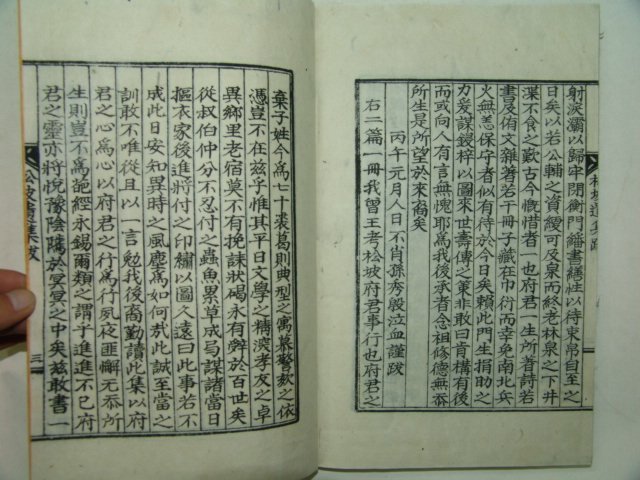 射淚灑以歸牢閉衡門繙書繕性以待東帛自至之
日矣以若公輔之資縵可及泉而終老林泉之下井
渫不食之歎古今慨惜者一也府君一生所著詩若
書及侑文雜著若干冊子藏在巾衍而幸免南北兵
火無恙保守者似有待於今日矣賴此門生捐助之
力爰謀鋟梓以圖來世壽傳之策非敢曰肯構有何
而或向人有言無愧耶爲我後承者念祖修德無忝
所生是所望於來裔矣
丙午元月人日不肖孫秀殷泣血謹跋
右二篇一冊我曾王考松坡府君事行也府君之
松坡遺集跋
棄子姓今爲七十裘葛則典型之寓慕警欬之依
憑豈不在玆乎惟其平日文學之精深孝友之卓
異鄉里老宿莫不有挽誄狀碣永有辭於百世矣
從叔伯仲分不忍付之蟲魚累草成局謀諸當日
摳衣家後進將付之印繡以圖久遠曰此事若不
成此日安知異時之風塵爲如何哉此誠至當之
訓敢不唯從且以一言勉我後裔勤讀此集以府
君之心爲心以府君之行爲行夙夜匪懈无忝所
生則豈不爲葩經永錫爾類之謂乎進進不已府
君之靈亦將悅豫陰隲於冥冥之中矣玆敢書一
松坡遺集跋
三